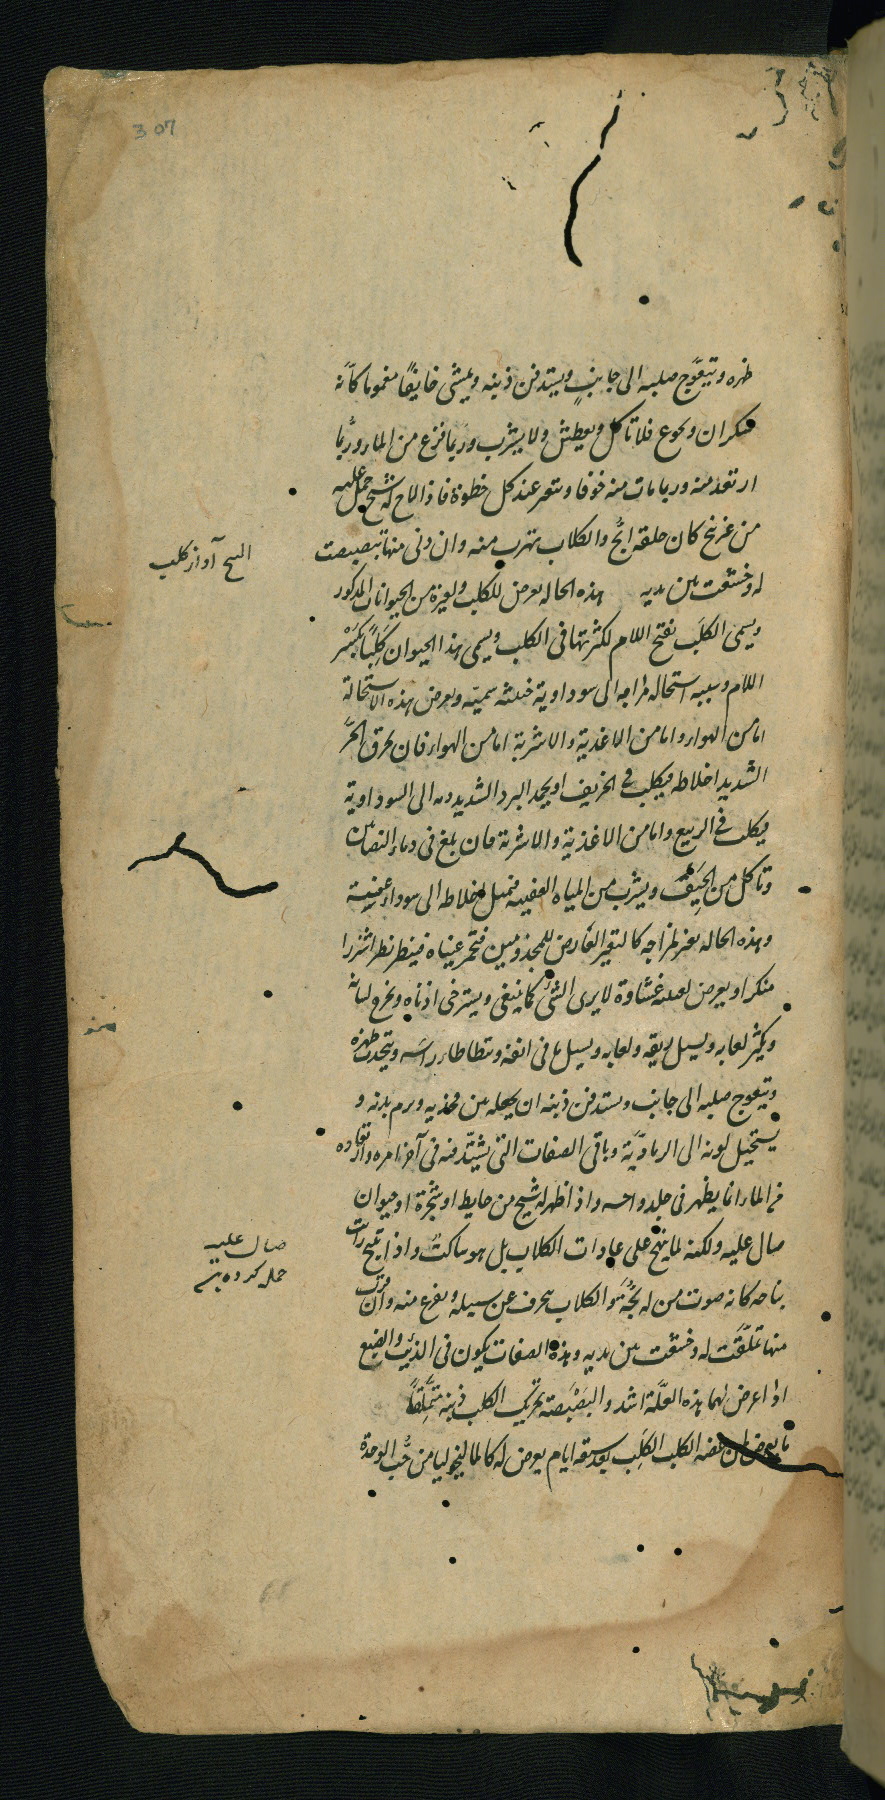 307
ظهره ويتعوّج صلبه الى جانبٍ ويستدفن ذنبه ويمشى خايفًا مغموما كانّه
سكران ويجوع فلا تاكل ويعطش ولا يشرب وربما فزع من الماء وربّما
ارتعد منه وربما مات منه خوفا ويتعثر عند كل خطوة فاذا لاح له شبح حمل عليه
من غير نبح كان حلقه ابحّ والكلاب تهرب منه وان دنى منها تبصبصت
له وخشعت بين يديه هذه الحالة تعرض للكلب ولغيره من الحيوانات المذكور
ويسمى الكلَب بفتح اللام لكثرتها فى الكلب ويسمى هذا الحيوان كَلِبًا بكَسْر
اللام وسببه استحالة مزاجه الى سوداوية خبيثة سميّه وتعرض هذه الاستحالة
اما من الهواء واما من الاغذية والاشربة اما من الهواء فان يحرق الحَّر
الشديد اخلاطه فيكلب فى الخريف او يجمد البرد الشديد دمه الى السوداوية
فيكلب فى الربيع واما من الاغذية والاشربة فان يلغ فى دماء القصابين
وتاكل من الجِيَف ويشرب من المياه العفينه فتميل اخلاطه الى سوداء عفنية
وهذه الحالة تغير مزاجه كالتغير العارض للمجذومين فتحمر عيناه فينظر نظرا شزرا
منكرا ويعرض لعينه غشاوة لا يرى الشئ كما ينبغى ويسترخى اذناه ويخرج لسانه
ويكثر لعابه ويسيل ريقه ولعابه ويسيل ما فى انفه ويتطاطا راسه ويتحدب ظهره
ويتعوج صلبه الى جانب ويستدفن ذنبه اى يجعله بين فخذيه ويرم بدنه و
يستحيل لونه الى الرماديّة وباقى الصفات التى يشتدّ فيه فى آخر امره وارتعاده
من الماء انما يظهر فى جلد راسه واذا ظهر له شبح من حايط او شجرة او حيوان
صال عليه ولكنه لا ينبح على عادات الكلاب بل هو ساكت واذا نبح رايت
نباحه كانه صوت من له بُحَّة والكلاب ينحرف عن سبيله ويفرع منه وان قرب
منها تملّقت له وخشعت بين يديه وهذه الصفات يكون فى الذئب والضبع
اذا عرض لهما هذه العلّة اشد والبَصْبَصة تحريك الكلب ذنبه تملُّقًا
ما يعرض لمن عضه الكلب الكَلِب بعد سبعة ايام يعرض له كالماليخوليا من حُب الوحدة
النبح آواز كلب
صال عليه
حمله كرد بروى